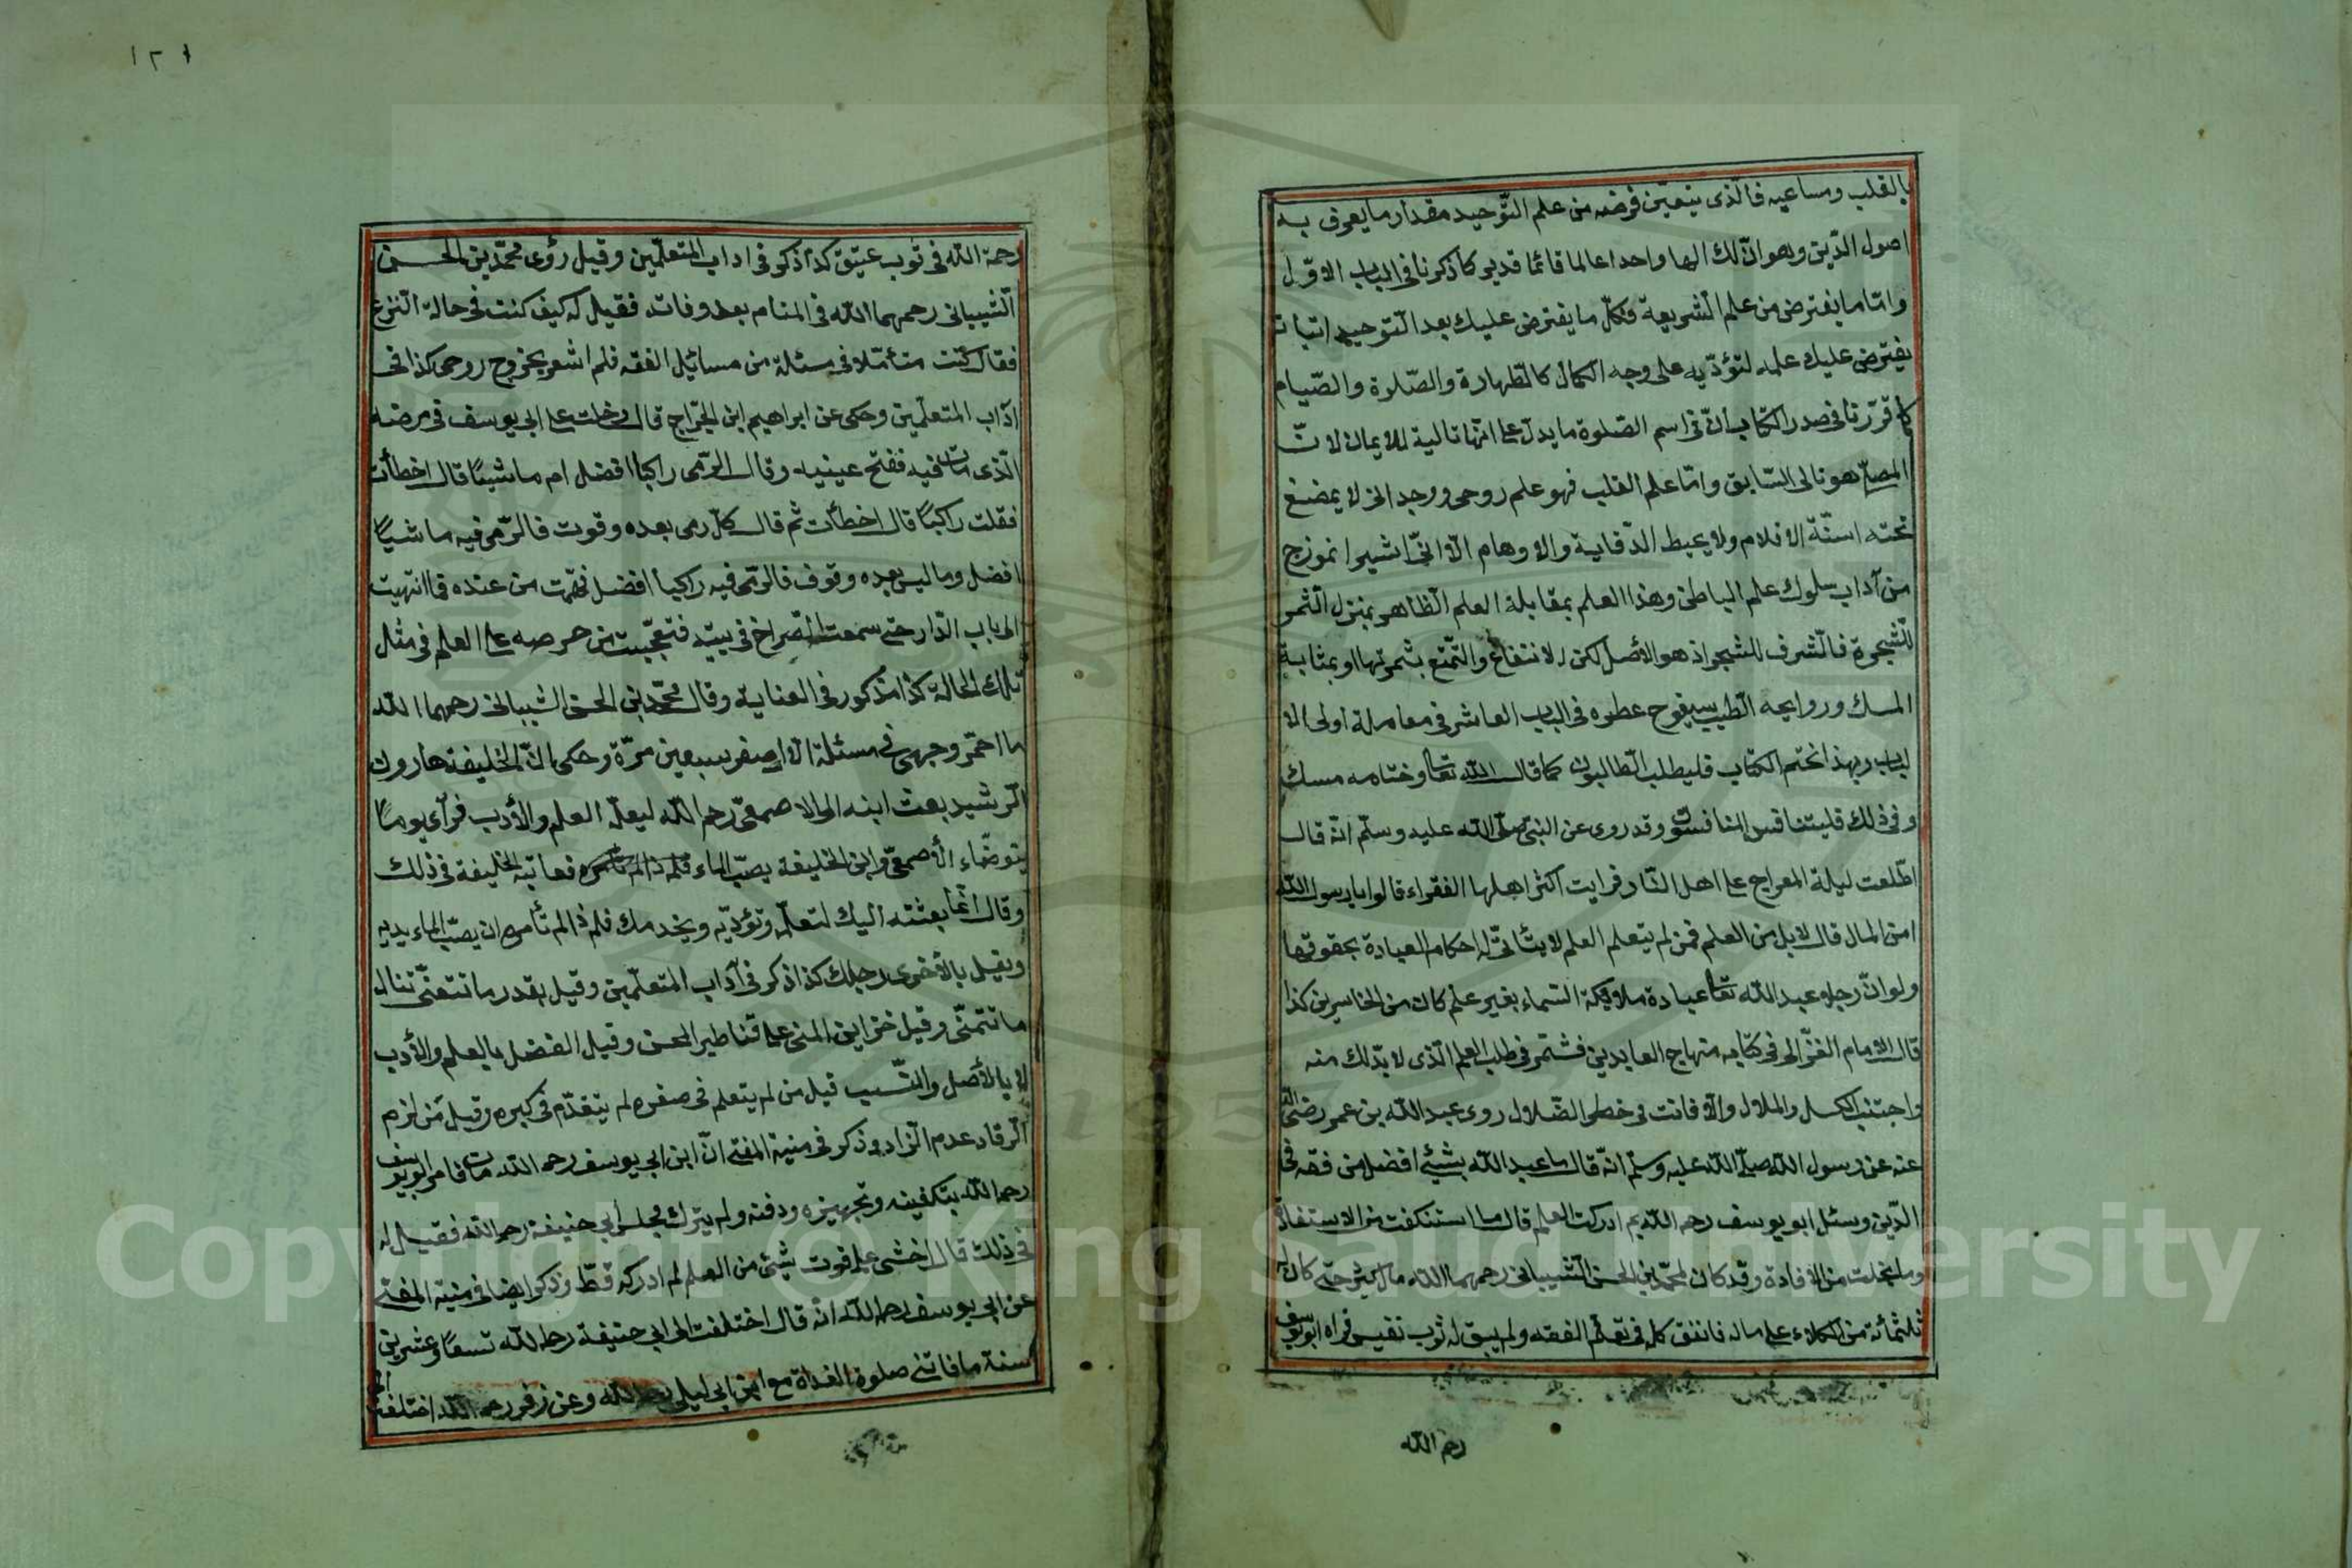 بالقلب ومساعيه فالّذى يتعيّن فرضه من علم التّوحيد مقدار ما يعرف به
اصول الدّين وهو انّ لك الها واحدا عالما قائما قديرا كما ذكرنا فى الباب الاوّل
وامّا ما يفترض من علم الشريعة فكلّ ما يفترض عليك بعد التّوحيد اتيانه
يفترض عليك علمه لتؤدّيه على وجه الكمال كالطّهارة والصّلوة والصّيام
كما قرّرنا فى صدر الكتاب انّ فى اسم الصّلوة ما يدلّ على انّها تالية للايمان لانّ
المصلّى هو تالى السّابق وامّا علم القلب فهو علم روحى ووجد
تحته اسنّة الاقلام ولا يحيط والاوهام الّا انّى اشير انموزج
من آداب سلوك علم الباطن وهذا العلم بمقابلة العلم الظّاهر بمنزل الثّمر
للشّجرة فالشّرف للشجر اذ هو الأصل لكن الانتفاع والتّمتع بثمرتها او بمثابة
المسك وروايحه الطّيب سيفوح عطره فى الباب العاشر فى معاملة اولى الا
لباب وبهذا نختم الكتاب فليطلب الطّالبون كما قال اللّه تعا وختامه مسك
وفى ذلك فليتنافس المتنافسون وقد روى عن النبىّ صلّى اللّه عليه وسلّم انّه قال
اطّلعت ليلة المعراج على اهل النّار فرايت اكثر اهلها الفقراء قالوا يا رسول اللّه
امن المال قال لا بل من العلم فمن لم يتعلم العلم لا يتأتّى له احكام العبادة بحقوقها
ولو انّ رجلا عبد اللّه تعا عبادة ملائكة السّماء بغير علم كان من الخاسرين كذا
قال الامام الغزّالى فى كتابه منهاج العابدين فشمّر فى طلب العلم الّذى لا بدّ لك منه
واجتنب الكسل والملال والّا فانت فى خطر الضّلال روى عبد اللّه بن عمر رضى اللّه
عنه عن رسول اللّه صلّى اللّه عليه وسلّم انّه قال ما عبد اللّه بشيئ افضل من فقه فى
الدّين وسئل ابو يوسف رحمه اللّه بم ادركت العلم قال ما استنكفت من الاستفادة
وما بخلت من الافادة وقد كان لمحمّد بن الحسن الشّيبانى رحمهما اللّه مال كثير حتّى كان له
ثلثمائة من الوكلاء على ماله فانفق كله فى تعلّم الفقه ولم يبق له ثوب نفيس فراه ابو يوسف
رحم اللّه
١٢١
رحمة اللّه فى ثوب عتيق كذا ذكر فى اداب المتعلّمين وقيل رؤى محمّد بن الحسن
الشّيبانى رحمهما اللّه فى المنام بعد وفاته فقيل له كيف كنت فى حالة النّزع
فقال كنت متأمّلا فى مسئلة من مسائل الفقه فلم اشعر بخروج روحى كذا فى
آداب المتعلّمين وحكى عن ابراهيم ابن الجرّاح قال دخلت على ابى يوسف فى مرضه
الّذى مات فيه ففتح عينيه وقال الرّمى راكبا افضل ام ماشيًا قال اخطأت
فقلت راكبًا قال اخطأت ثم قال كلّ رمى بعده وقوف فالرّمى فيه ماشيًا
افضل وما ليس بعده وقوف فالرّمى فيه راكبا افضل فقمت من عنده فما انتهيت
الى باب الدّار حتّى سمعت الصّراخ فى بيته فتعجّبت من حرصه على العلم فى مثل
تلك الحالة كذا مذكور فى العناية وقال محمّد بن الحسن الشيبانى رحمهما اللّه
ما احمرّ وجهى فى مسئلة الّا اصفر سبعين مرّة وحكى انّ الخليفة هارون
الرّشيد بعث ابنه الى الاصمعىّ رحم اللّه ليعلّمه العلم والأدب فرآى يومًا
يتوضّاء الأصمعىّ وابن الخليفة يصبّ الماء فعاتبه الخليفة فى ذلك
وقال انّما بعثته اليك لتعلّمه وتؤدّبه ويخدمك فلم ذا لم تأمره ان يصبّ الماء بيديه
ويغسل بالأخرى رجلك كذا ذكر فى آداب المتعلّمين وقيل بقدر ما تتعنّى تنال
ما تتمنّى وقيل خزاين المنى على قناطير المحن وقيل الفضل بالعلم والأدب
لا بالأصل والنّسب قيل من لم يتعلم فى صغره لم يتقدّم فى كبره وقيل من لزم
الرّقاد عدم الزاد وذكر فى منية المفتى انّ ابن ابى يوسف رحمه اللّه مات فامر ابو يوسف
رحمه اللّه بتكفينه وتجهيزه ودفنه ولم يترك مجلس ابى حنيفة رحمه اللّه فقيل له
فى ذلك قال اخشى على فوت شيئ من العلم لم ادركه قطّ وذكر ايضا فى منية المفتى
عن ابى يوسف رحمه اللّه انّه قال اختلفت الى ابى حنيفة رحمه اللّه تسعًا وعشرين
سنة ما فاتنى صلوة الغداة مع ابن ابى ليلى رحمه اللّه وعن زفر رحمه اللّه اختلفت الى
Copyright © King Saud University